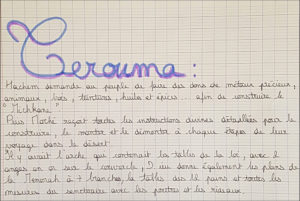 Terouma :
Hachem demande au peuple de faire des dons de métaux précieux,
animaux, bois, teintures, huiles et épices afin de construire le
"Michkane"
Puis Moché reçoit toutes les instructions divines détaillées pour le
construire, le monter et le démonter à chaque étapes de leur
voyage dans le désert.
Il y aurait l'arche qui contenait les tables de la loi, avec 2
anges en or sur le couvercle, D.ieu donne également les plans de
la Menorah à 7 branches, la table des 12 pains et toutes les
mesures du sanctuaire avec les portes et les rideaux.